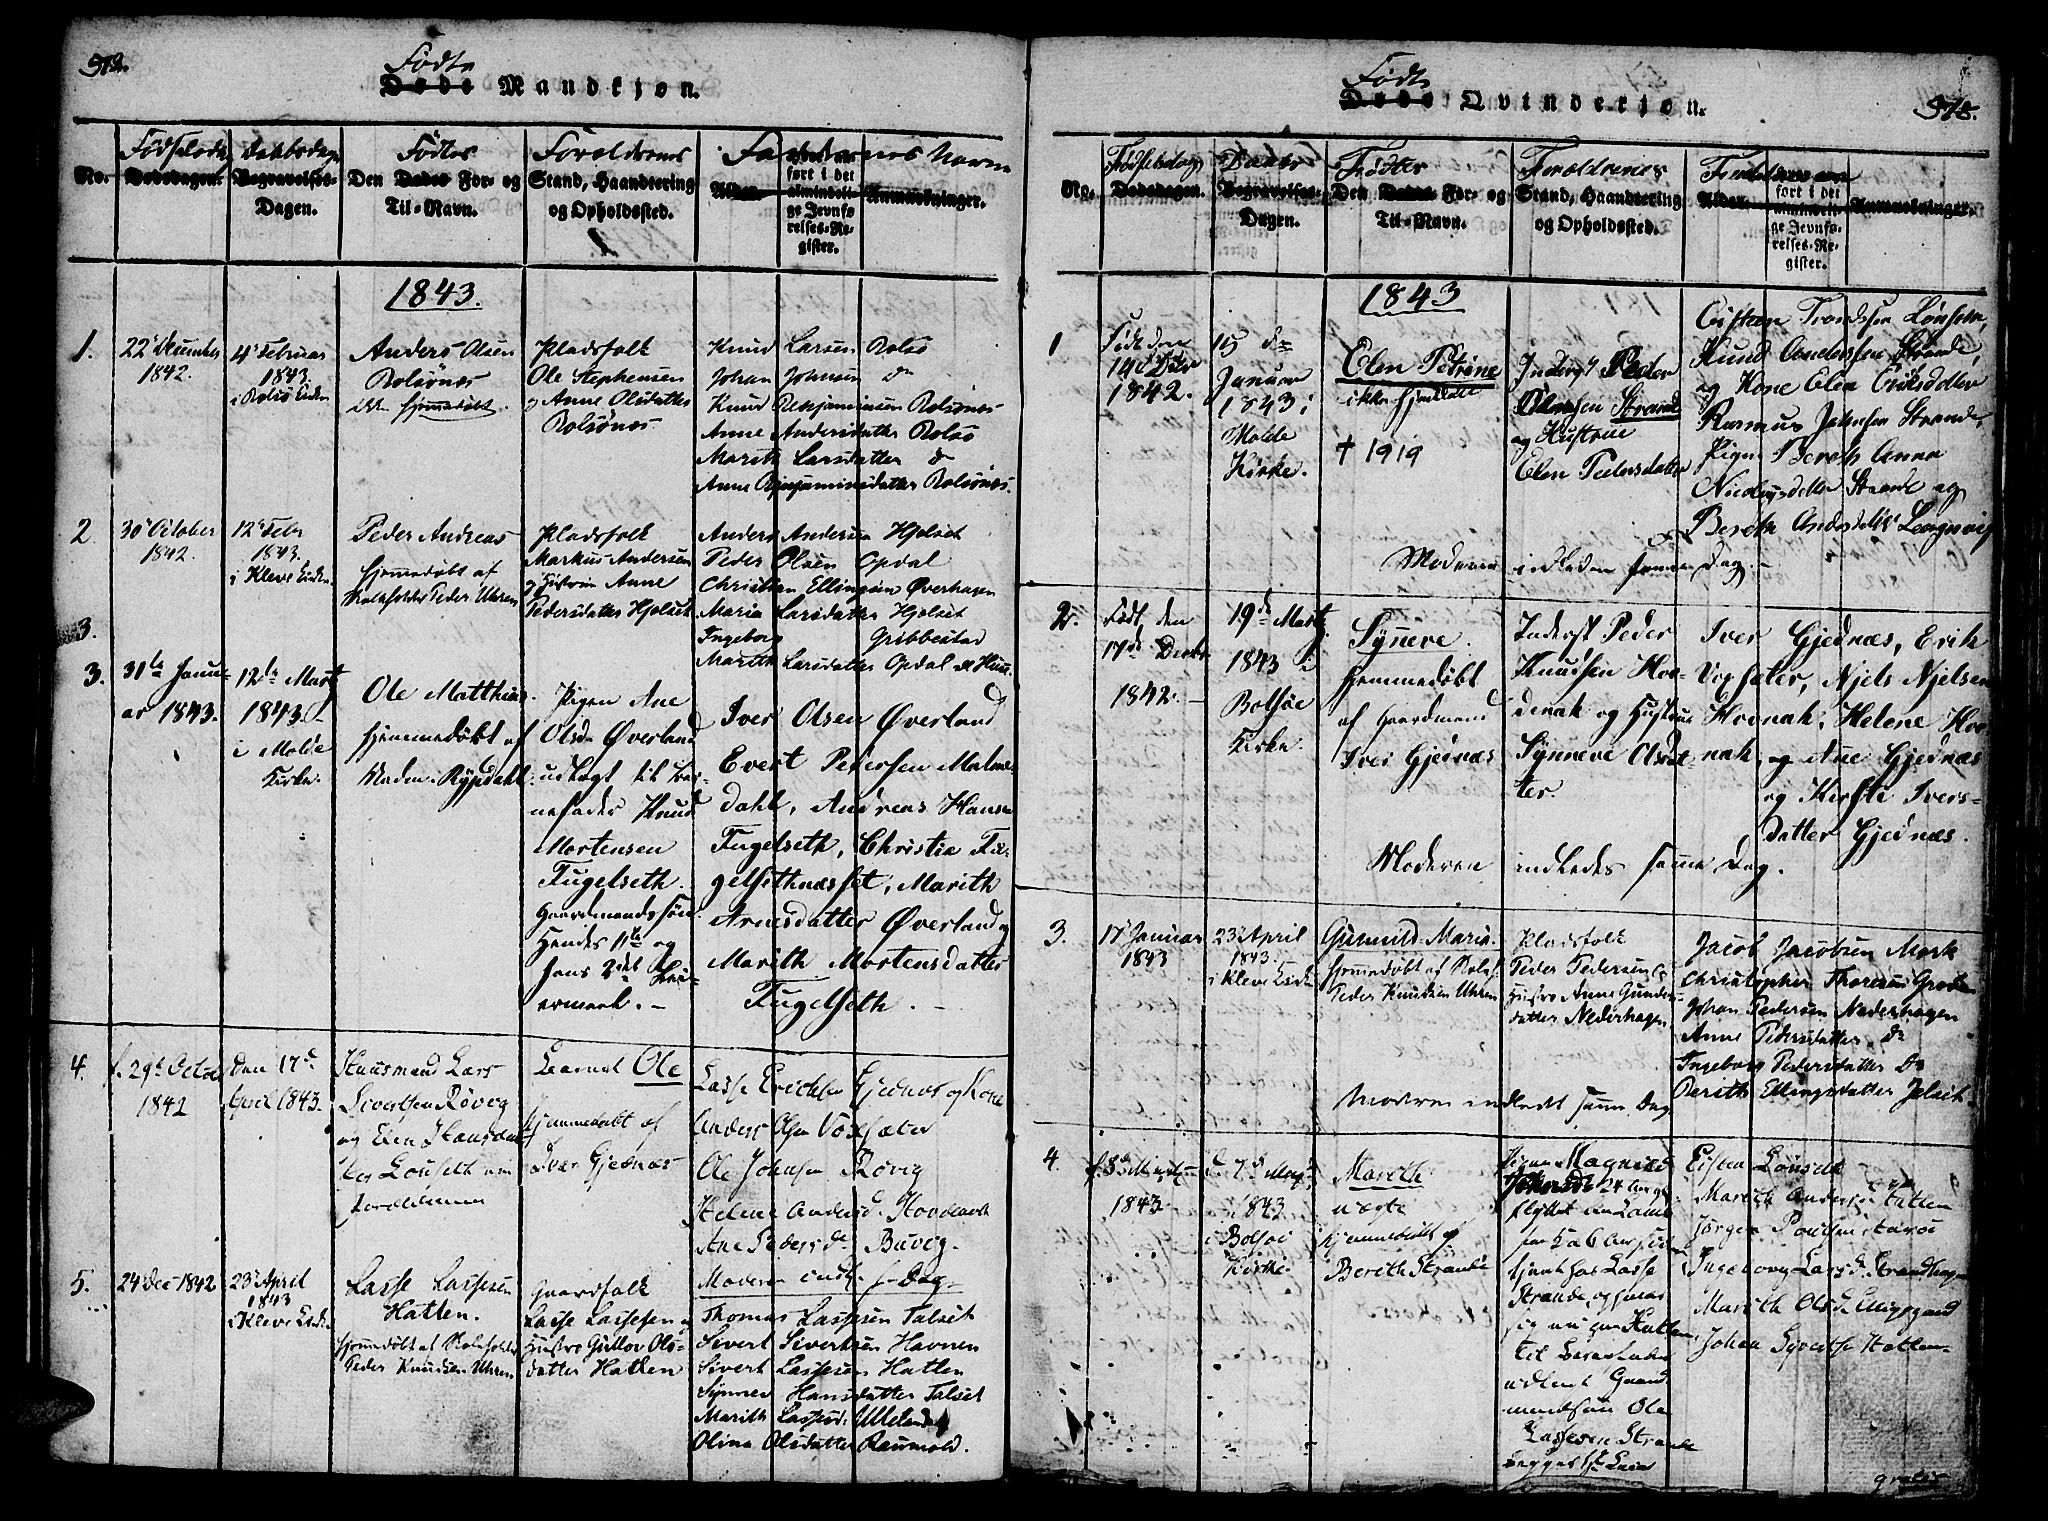 512.
Fødte
Døde Mandkjøn.
Fødselsdag
Daabsdag
Fødtes
Forældrenes
Faddernes Navn
No.
Dødedagen.
Begravelses-
Dagen.
Den Dødes For- og
Til-Navn.
Stand, Haandtering
og Opholdssted.
Alder.
ført i det
almindeli-
ge Jevnfø-
relses-Re-
gister.
Anmærkninger.
1843.
1.
22 December
1842.
4 Februar
1843
i Bolsø Kirken
Anders Olsen
Bolsønes
ikke hjemmedøbt.
Pladsfolk
Ole Stephensen
og Anne Olsdatter
Bolsønes
Knud Larsen Bolsø
Johan Johnsen do
Knud Benjaminsen Bolsønes
Anne Andersdatter Bolsø
Marith Larsdatter do
Anne Benjaminsdatter Bolsønes.
2.
30 October
1842.
12 Febr
1843.
i Kleve Kirken
Peder Andreas
hjemmedøbt af
Peder Uhren
Pladsfolk
Markus Andersen
og Hustru Anne
Pedersdatter Hjelset
Anders Andersen Hjelset
Peder Olsen Opdal
Christian Ellingsen Øverhagen
Maria Larsdatter Hjelset
Ingeborg Gribbestad
Marith Larsdatter Opdal
3.
3.
31te Janu-
ar 1843.
12te Mart
1843.
i Molde
Kirke.
Ole Matthias
hjemmedøbt af
Moderen
Pigen Ane
Olsdr Øverland
udlagt til Bar-
nefader Knud
Mortensen
Fugelseth
Gaardmandssøn
Hendes 11te og
hans 2det Lei-
ermaal. -
Iver Olsen Øverland
Evert Pedersen Malme-
dahl, Andreas Hansen
Fugelseth, Christie Fu-
gelsethnæsset, Marith
Arnesdatter Øverland og
Marith Mortensdatter
Fugelseth. -
4.
f. 29d Octobr
1842
den 17d
April 1843.
Huusmand Lars
Sivertsen Røvig
og Elen Hansdat-
ter
Forældrene
Barnet Ole
hjemmedøbt af
Iver Gjednæs
Lasse Erichsen Gjednæs og Kone
Anders Olsen Voxsæter
Ole Johnsen Røvig
Helene Andersd. Hovdenak
Ane Pedersdr Buvig.
Moderen indl. s. Dag.
5.
24 Dec 1842
23 April
1843
i Kleve Kirken
Lasse Lassesen
Hatten.
hjemmedøbt af
Peder Knudsen Uhren
Gaardfolk
Lasse Lassesen og
Hustru Gurlov Ols-
datter Hatten
Thomas Lassesen Talset
Sivert Sivertsen Havnen
Sivert Lassesen Hatten
Synnev Hansdatter Talset
Marith Lassesd. Ulleland
Olina Olsdatter
Fødte
Døde Qvindekjøn.
513.
Fødselsdag
Daabs
Fødtes
Forældrenes
Faddernes
No.
Dødedagen.
Begravelses-
Dagen.
Den Dødes For- og
Til-Navn.
Stand, Haandtering
og Opholdssted.
Alder.
ført i det
almindeli-
ge Jevnfø-
relses-Re-
gister.
Anmærkninger.
1843
1
Født den
14 Decbr
1842.
15 de
Januar
1843 i
Molde
Kirke.
Elen Petrine
ikke hjemdøbt
† 1919
Inderst Peder
Strande
og Hustrue
Elen Pedersdatter
Cristen Trondsen Lønseth,
Knud Andersen Strande,
og Kone Elen Eriksdatter
Rasmus Johnsen Strande,
Pigen Bereth Anna
Nicolaysdatter Strande og
Bereth Andersdatter
Moderen indleden samme Dag. -
2.
Født den
17de Decbr
1842. -
19de Marts
1843 i
Bolsøe
Kirke.
Synneve.
hjemmedøbt
af Gaardmand
Iver Gjednæs
Inderst Peder
Knudsen Hov-
denak og Hustrue
Synneve Olsdat-
ter.
Iver Gjednæs, Erik
Voxsæter, Niels Nielsen
Hovnak, Helene Hov-
nak, og Ane Gjednæs
og Kirstie Ivers-
datter Gjednæs.
Moderen indledes samme Dag.
3.
17 Januar
1843
23 April
1843.
i Kleve Kirken
Gunnild Maria.
hjemmedøbt af
Peder Knudsen Uhren
Pladsfolk
Peder Pedersen og
Hustro Anne Gunders-
datter Nederhagen
Jacob Jacobsen Mork
Christopher
Johan Pedersen Nederhagen
Anne Pedersdatter do
Ingeborg Pedersdatter Do
Berith Ellingsdatter Jelset.
Moderen indledt samme Dag
4.
1843
d. 7d May
1843
i Bolsøe
Kirke.
Mareth
uægte
hjemmedøbt af
Berith Strande
Pigen Magnild
24 Aar gl.
tjent hos Lasse
Strande, og
til Barnefader
udlagt Gaard-
mandssøn Ole
Lassesen Strande
Begges 1ste Leier
Eisten Lønset
Mareth Andersd Hatten
Jørgen Povelsen
Ingeborg Larsd. Strandhagen
Mareth Olsd
Johan Syvertsen Hatten